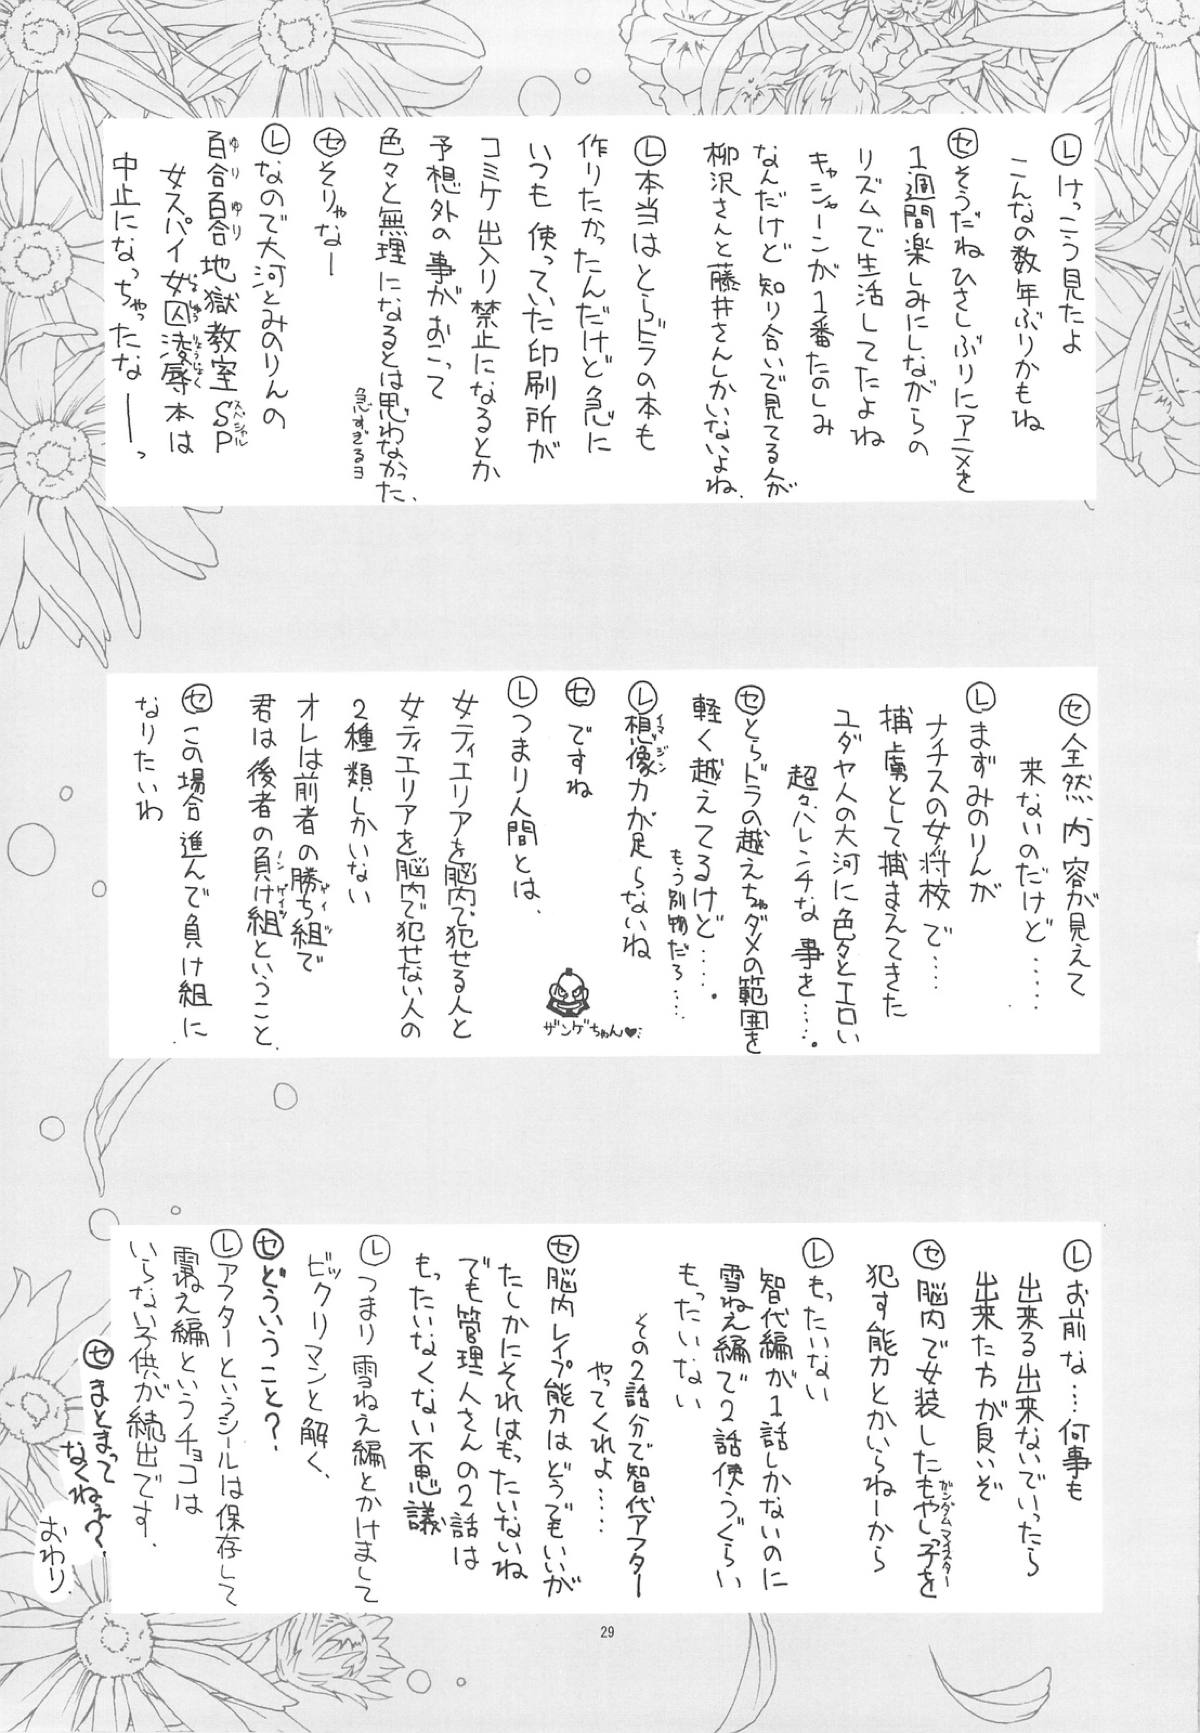 Ⓛけっこう見たよ
こんなの数年ぶりかもね
㋝そうだねひさしぶりにアニメを
1週間楽しみにしながらの
リズムで生活してたよね
キャシャーンが1番たのしみ
なんだけど知り合いで見てる人が
柳沢さんと藤井さんしかいないよね
Ⓛ本当はとらドラの本も
作りたかったんだけど急に
いつも使っていた印刷所が
コミケ出入り禁止になるとか
予想外の事がおこって
色々と無理になるとは思わなかった
急すぎるヨ
㋝そりゃなー
Ⓛなので大河とみのりんの
百合百合地獄教室SP
ゆり ゆり スペシャル
女スパイ女囚凌辱本は
じょしゅうりょうじょく
中止になっちゃったなーーっ
㋝全然内容が見えて
来ないのだけど……
Ⓛまずみのりんが
ナチスの女将校で……
捕虜として捕まえてきた
ユダヤ人の大河に色々とエロい
超々ハレンチな事を……
㋝とらドラの越えちゃダメの範囲を
軽く越えてるけど……
もう別物だろ……
Ⓛ想像力が足らないね
イマジン
㋝ですね
ザンゲちゃん♥
Ⓛつまり人間とは、
女ティエリアを脳内で犯せる人と
女ティエリアを脳内で犯せない人の
2種類しかいない
オレは前者の勝ち組で
君は後者の負け組ということ
㋝この場合進んで負け組に
なりたいわ
Ⓛお前な…何事も
出来る出来ないでいったら
出来た方が良いぞ
㋝脳内で女装したもやしっ子を
ガンダムマイスター
犯す能力とかいらねーから
Ⓛもったいない
智代編が1話しかないのに
雪ねえ編で2話使うぐらい
もったいない
その2話分で智代アフター
やってくれよ……
㋝脳内レイプ能力はどうでもいいが
たしかにそれはもったいないね
でも管理人さんの2話は
もったいなくない不思議
Ⓛつまり雪ねえ編とかけまして
ビックリマンと解く、
㋝どういうこと?
Ⓛアフターというシールは保存して
雪ねえ編というチョコは
いらない子供が続出です。
㋝まとまって
なくねぇ?
おわり
29